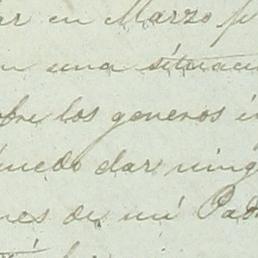 ar en Marzo p
n una situaci
obre los generos i
uedo dar ning
nes de mi Pad